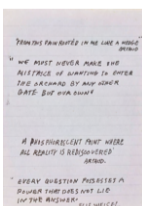 "FROM THIS PAIN ROOTED IN ME LIKE A WEDGE"
ARTAUD
" WE MUST NEVER MAKE THE
MISTAKE OF WANTING TO ENTER
THE ORCHARD BY ANY OTHER
GATE BUT OUR OWN"
A PHOSPHORESCENT POINT WHERE
ALL REALITY IS REDISCOVERED'
ARTAUD.
EVERY QUESTION POSSESSES A
POWER THAT DOES NOT LIE
IN THE ANSWER.
ELIE WIESEL